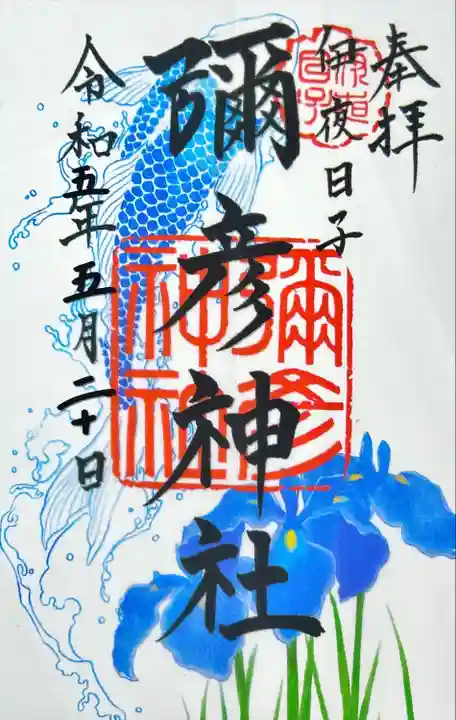 奉拝
伊夜日子
彌彦神社
彌彦神社
令和五年五月二十日